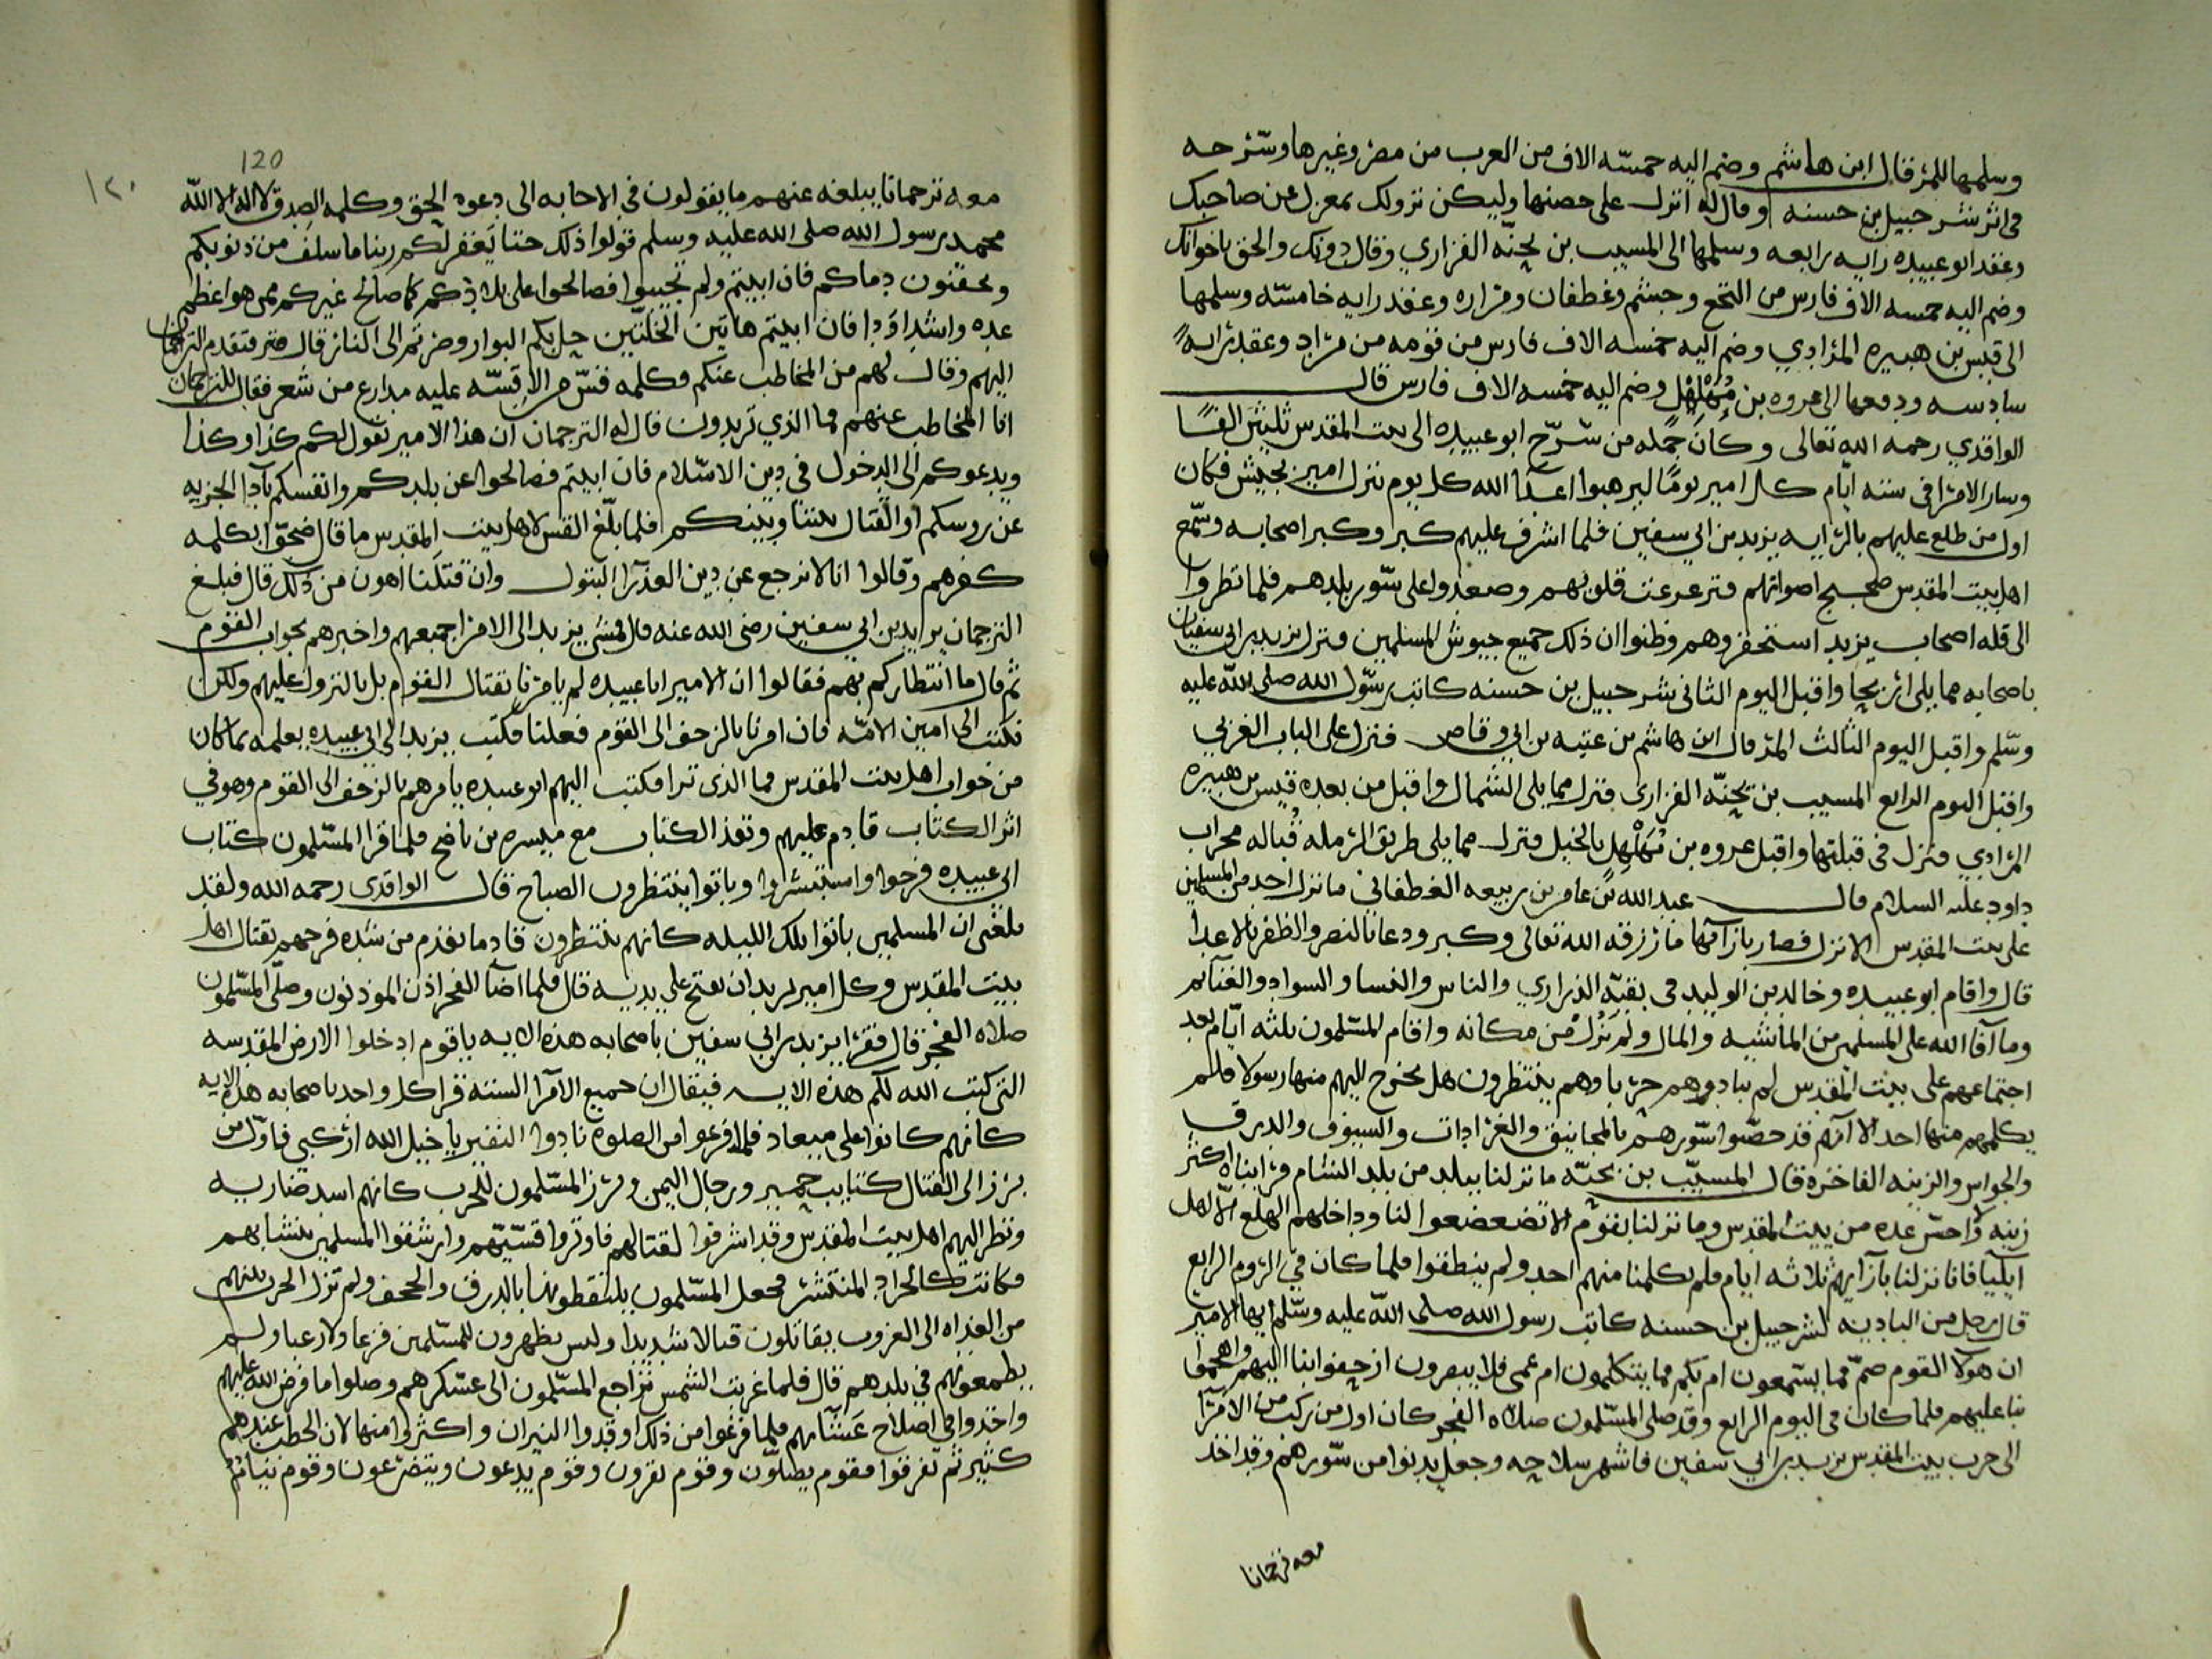 وسلمها للمرقال ابن هاشم وضم اليه خمسه الاف من العرب من مضر وغيرها وسرحه
فى اثر شرحبيل بن حسنه وقال له انزل على حصنها وليكن نزولك بمعزل عن صاحبك
وعقد ابو عبيده رايه رابعه وسلمها الى المسيب بن نجبّه الفزاري وقال دونك والحق باخوانك
وضم اليه خمسه الاف فارس من النخع وجشم وغطفان وفزاره وعقد رايه خامسّه وسلمها
الى قيس بن هبيره المرادي وضم اليه خمسه الاف فارس من قومه من مراد وعقد رايه
سادسه ودفعها الى عروه بن مُهَلْهِل وضم اليه خمسه الاف فارس قال
الواقدي رحمه الله تعالى وكان جمله من سّرّح ابو عبيده الى بيت المقدس ثلثين الفًا
وسار الامرا فى سته ايام كل امير يومًا ليرهبوا اعدآ الله كل يوم ينزل امير بجيش فكان
اول من طلع عليهم بالرايه يزيد بن ابي سفين فلما اشرف عليهم كبر وكبر اصحابه وسّمع
اهل بيت المقدس ضجيج اصواتهم فترعرعت قلوبهم وصعدوا على سّور بلدهم فلما نظروا
الى قله اصحاب يزيد استحقروهم وظنوا ان ذلك جميع جيوش المسلمين ونزل يزيد بن ابي سفيان
باصحابه مما يلي اريحا واقبل اليوم الثاني شرحبيل بن حسنه كاتب رسّول الله صلى الله عليه
وسّلم واقبل اليوم الثالث المرقال ابن هاشم بن عتبه بن ابي وقاص فنزل على الباب الغربي
واقبل اليوم الرابع المسيب بن نجبّه الفزاري فنزل مما يلى الشمال واقبل من بعده قيس بن هبيره
المرادي فنزل فى قبلتها واقبل عروه بن مُهَلْهِل بالخيل فنزل مما يلى طريق الرمله قُباله محراب
داود عليه السلام قال عبد الله بن عامر بن ربيعه الغطفاني ما نزل احد من المسلمين
على بيت المقدس الا نزل فصار بازآئها ما رزقه الله تعالى وكبر ودعا بالنصر والظفر بالاعدا
قال واقام ابو عبيده وخالد بن الوليد فى بقيّه الذراري والناس والنسا والسواد والغنآيم
وما آفا الله على المسلمين من الماشيه والمال ولم يزل من مكانه واقام المسّلمون ثلثه ايّام بعد
اجتماعهم على بيت المقدس لم يبادوهم حربا وهم ينتظرون هل يخرج اليهم منها رسولا فلم
يكلمهم منها احد الا انهم قد حصّنوا سّورهم بالمجانيق والعرادات والسيوف والدرق
والجواس والزينه الفاخره قال المسيّب بن نجبّه ما نزلنا ببلد من بلد الشام فراينا اكثر
زينه ولا احسّن عده من بيت المقدس وما نزلنا بقوم الا تضعضعوا لنا وداخلهم الهلع الا اهل
ايليا فانا نزلنا بآزايهم ثلاثه ايام فلم يكلمنا منهم احد ولم ينطقوا فلما كان فى الزوم الرابع
قال رجل من الباديه لشرحبيل بن حسنه كاتب رسول الله صلى الله عليه وسّلم ايها الامير
ان هولآ القوم صمّ فما يسّمعون ام بكم فما يتكلمون ام عمى فلا يبصرون ازحفوا بنا اليهم واهجموا
بنا عليهم فلما كان فى اليوم الرابع وقد صلى المسّلمون صلاه الفجر كان اول من ركب من الامرآ
الى حرب بيت المقدس يزيد بن ابي سفين فاشهر سلاحه وجعل يدنوا من سّورهم وقد اخذ
معه ترجمانا
120
١٢٠
معه ترجمانا يبلغه عنهم ما يقولون فى الاجابه الى دعوه الحق وكلمه الصدق لا اله الا الله
محمد رسول الله صلى الله عليه وسلم قولوا ذلك حتا يغفر لكم ربنا ما سلف من ذنوبكم
وتحقنون دماكم فان ابيتم ولم تجيبوا فصالحوا على بلادكم كما صالح غيركم ممن هو اعظم
عده واشد اوَدا فان ابيتم هاتين الخلتين حل بكم البوار ومزقتم الى النار قال فتقدم الترجمان
اليهم وقال لهم من المخاطب عنكم وكلمه قسّ من الاقسّه عليه مدارع من شعر فقال للترجمان
انا المخاطب عنهم فما الذي تريدون قال له الترجمان ان هذا الامير يقول لكم كذا وكذا
ويدعوكم الى الدخول في دين الاسّلام فان ابيتم فصالحوا عن بلدكم وانفسكم بآدا الجزيه
عن رووسكم او القتال بيننا وبينكم فلما بلّغ القس لاهل بيت المقدس ما قال ضجوا بكلمه
كفرهم وقالوا انا لا نرجع عن دين العذرآ البتول وان قتلنا اهون من ذلك قال فبلغ
الترجمان يزيد بن ابي سفين رضى الله عنه قال فمشى يزيد الى الامرا جميعهم واخبرهم بجواب القوم
ثم قال ما انتظاركم بهم فقالوا ان الامير ابا عبيده لم يامرنا بقتال القوم بل بالنزول عليهم ولكن
نكتب الى امين الامّه فان امرنا بالزحف الى القوم فعلنا فكتب يزيد الى ابي عبيده يعلمه بما كان
من جواب اهل بيت المقدس فما الذى ترا فكتب اليهم ابو عبيده يامرهم بالزحف الى القوم وهو في
اثر الكتاب قادم عليهم ونفذ الكتاب مع ميسره بن ناصح فلما قرا المسّلمون كتاب
ابي عبيده فرحوا واستبشروا وباتوا ينتظرون الصباح قال الواقدى رحمه الله ولقد
بلغنى ان المسلمين باتوا بلك الليله كانهم ينتظرون قادما يقدم من شده فرحهم بقتال اهل
بيت المقدس وكل امير يريد ان يفتح على يديه قال فلما اضآ الفجر اذن الموذنون وصلّى المسّلمون
صلاه الفجر قال فقرا يزيد بن ابي سفين باصحابه هذه الايه ياقوم ادخلوا الارض المقدسه
التى كتب الله لكم هذه الايه فيقال ان جميع الآمرآ السته قرا كل واحد باصحابه هذه الايه
كانهم كانوا على ميعاد فلما فرغوا من الصلوه نادوا النفير ياخيل الله اركبى فاول من
برز الى القتال كتايب حمير ورجال اليمن وبرز المسّلمون للحرب كانهم اسد ضاريه
ونظر اليهم اهل بيت المقدس وقد اشرفوا لقتالهم فاوتروا قسّيّهم وارشقوا المسلمين بنشابهم
فكانت كالجراد المنتشر فجعل المسّلمون يلتقطونها بالدرق والحجف ولم تزل الحرب بينهم
من الغداه الى الغروب يقاتلون قتالا شديدا وليس يظهرون للمسّلمين فزعا ولا رعبا ولم
يطمعوهم في بلدهم قال فلما غربت الشمس تراجع المسّلمون الى عسّكرهم وصلوا ما فرض الله عليهم
واخذوا في اصلاح عشآيهم فلما فرغوا من ذلك اوقدوا النيران واكثروا منها لان الحطب عندهم
كثير ثم تفرقوا فقوم يصلّون وقوم يقرون وقوم يدعون ويتضرعون وقوم نيام